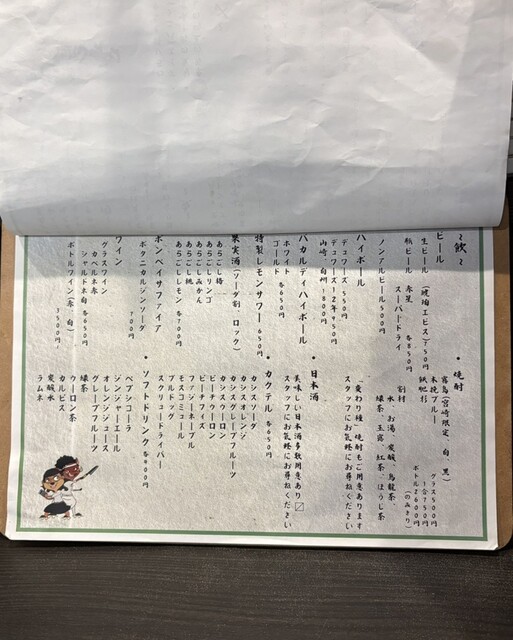 ～飲～
ビール
生ビール（琥珀エビス）750円
瓶ビール 赤星
スーパードライ
各850円
ノンアルビール500円
ハイボール
デュワーズ550円
デュワーズ12年950円
山崎、白州1800円
バカルディハイボール
ホワイト
ゴールド
各650円
特製レモンサワー 650円
果実酒（ソーダ割、ロック）
あらごし梅
あらごしリンゴ
あらごしみかん
あらごし桃
あらごしレモン
各700円
ボンベイサファイア
ボタニカルジンソーダ
700円
ワイン
グラスワイン
カベルネ赤
シャルドネ白
各650円
ボトルワイン（赤、白）
3500円
・焼酎
霧島（宮崎限定、白、黒）
木挽ブルー
飫肥杉
グラス500円
1合750円
ボトル2600円
（のみきり）
割材
水、お湯、炭酸、烏龍茶、
緑茶、玉露、紅茶、ほうじ茶
“変わり種”焼酎もご用意あります
スタッフにお気軽にお尋ねください
・日本酒
美味しい日本酒多数用意あり
スタッフにお気軽にお尋ねください
・カクテル 各650円
カシスソーダ
カシスオレンジ
カシスグレープフルーツ
カシスウーロン
ピーチウーロン
ピーチフィズ
ファジーネーブル
モスコミュール
ブルドッグ
スクリュードライバー
・ソフトドリンク 各400円
ペプシコーラ
ジンジャーエール
オレンジジュース
グレープフルーツ
緑茶
ウーロン茶
カルピス
炭酸水
ラムネ